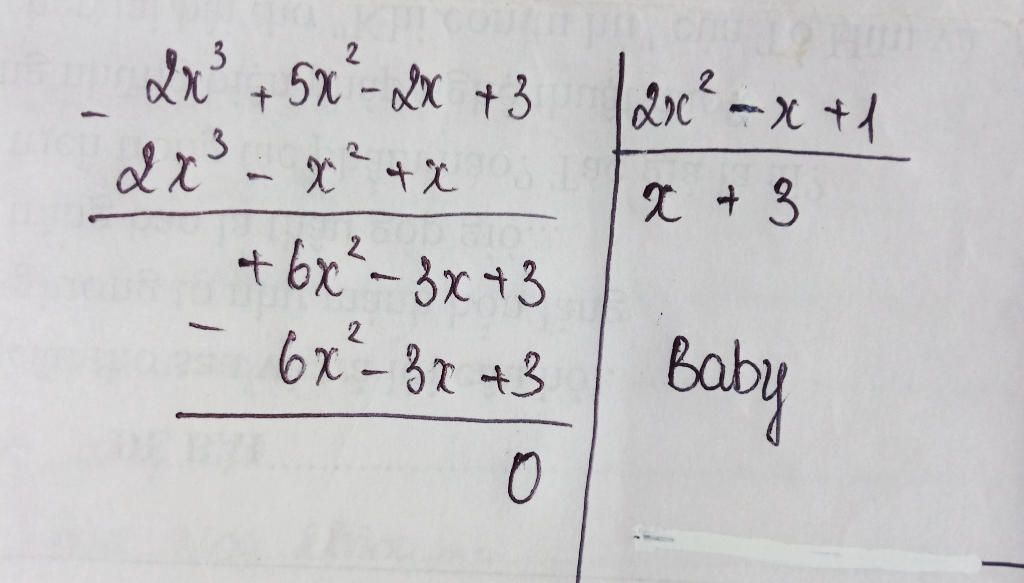 - 2x³ + 5x² - 2x + 3 | 2x² - x + 1
2x³ - x² + x | x + 3
+ 6x² - 3x + 3
- 6x² - 3x + 3 | Baby
0